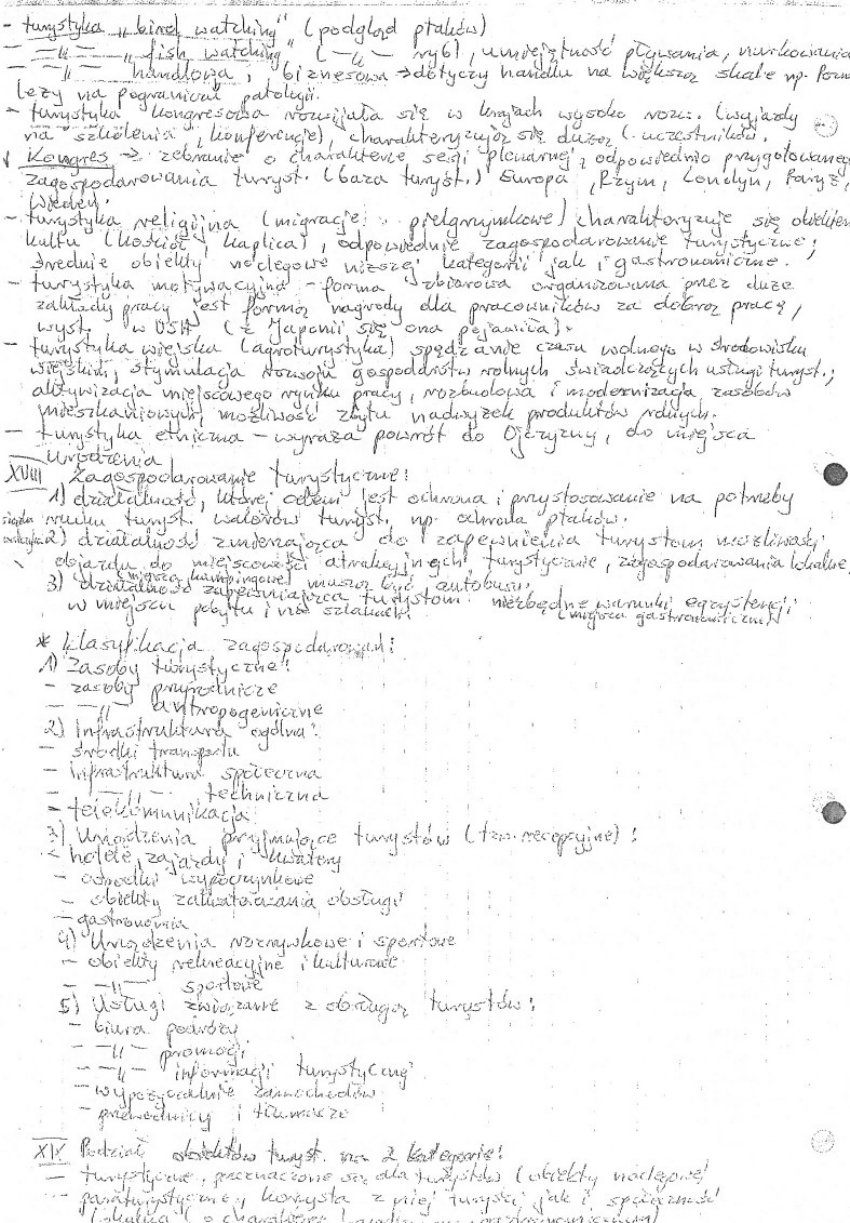 - turystyka „bird watching" (podgląd ptaków)
- —„— „fish watching" (—„— ryb), umiejętność pływania, nurkowania
- —„— handlowa, biznesowa → dotyczy handlu na większą skale np.
leży na pograniczu patologii.
- turystyka kongresowa rozwijała się w krajach wysoko rozw. (wyjazdy
na szkolenia, konferencje), charakteryzują się dużą l. uczestników.
Kongres → zebranie o charakterze sesji plenarnej, odpowiednio przygotowanego
zagospodarowania turyst. (baza turyst.) Europa, Rzym, Londyn, Paryż,
Wiedeń.
- turystyka religijna (migracje pielgrzymkowe) charakteryzuje się obiektem
kultu (kościół, kaplica), odpowiednie zagospodarowanie turystyczne;
średnie obiekty noclegowe niższej kategorii jak i gastronomiczne.
- turystyka motywacyjna - forma zbiorowa organizowana przez duże
zakłady pracy jest formą nagrody dla pracowników za dobrą pracę,
wyst. w USA (z Japonii się ona pojawiła).
- turystyka wiejska (agroturystyka) spędzanie czasu wolnego w środowisku
wiejskim, stymulacja rozwoju gospodarstw rolnych świadczących usługi turyst.;
aktywizacja miejscowego rynku pracy, rozbudowa i modernizacja zasobów
mieszkaniowych, możliwość zbytu nadwyżek produktów rolnych.
- turystyka etniczna - wyraża powrót do Ojczyzny, do miejsca
urodzenia
XVIII Zagospodarowanie turystyczne:
1) działalność, której celem jest ochrona i przystosowanie na potrzeby
ruchu turyst. walorów turyst. np. ochrona ptaków.
2) działalność zmierzająca do zapewnienia turystom możliwości
dojazdu do miejscowości atrakcyjnych turystycznie, zagospodarowania lokalne,
(miejsca kampingowe) muszą być autobusy.
3) działalność zapewniająca turystom niezbędne warunki egzystencji
w miejscu pobytu i na szlakach. (miejsca gastronomiczne)
* Klasyfikacja zagospodarowań:
1) Zasoby turystyczne:
- zasoby przyrodnicze
- —„— antropogeniczne
2) Infrastruktura ogólna:
- środki transportu
- infrastruktura społeczna
- —„— techniczna
- telekomunikacja
3) Urządzenia przyjmujące turystów (tzw. recepcyjne):
- hotele, zajazdy i kwatery
- ośrodki wypoczynkowe
- obiekty zakwaterowania obsługi
- gastronomia
4) Urządzenia rozrywkowe i sportowe
- obiekty rekreacyjne i kulturowe
- —„— sportowe
5) Usługi związane z obsługą turystów:
- biura podróży
- —„— promocji
- —„— informacji turystycznej
- wypożyczalnie samochodów
- przewodnicy i tłumacze
XIX Podział obiektów turyst. na 2 kategorie:
- turystyczne, przeznaczone są dla turystów (obiekty noclegowe)
- paraturystyczne, korzysta z niej turyści jak i społeczność
lokalna (o charakterze